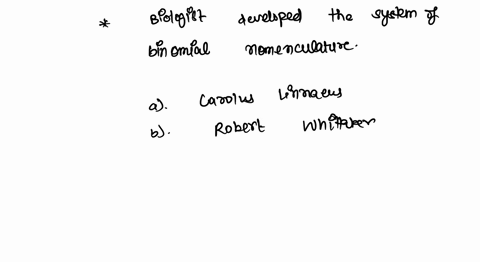 * Biologist developed the system of
binomial nomenculature.
a). Carolus Linnaeus
b). Robert Whittaker